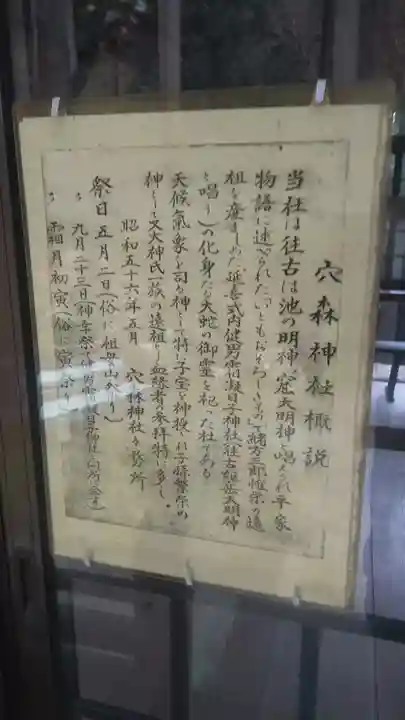 穴森神社概説
当社は往古は池の明神、窟大明神と唱えられ平家
物語に述べられた「いともおそろしきもの」で緒方三郎惟栄の遠
祖を産ましめた延喜式内健男霜凝日子神社(往古姥岳大明神
と唱う)の化身たる大蛇の御霊を祀った社である
天候氣象を司る神として特に子宝を神授され子孫繁栄の
神として又大神氏一族の遠祖とし血縁者の参拝特に多し。
昭和五十六年五月 穴森神社々務所
祭日五月二日(俗に祖母山参り)
〃 九月二十三日(神幸祭で
〃 霜月初寅(俗に寅まつり)